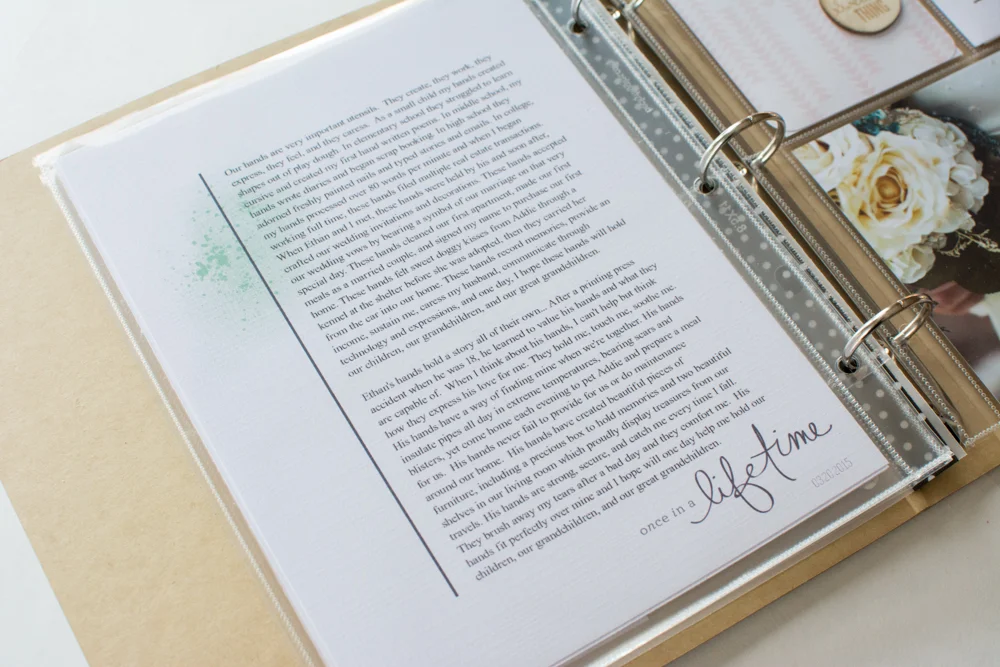 Our hands are very important utensils. They create, they work, they
express, they feel, and they caress. As a small child my hands created
shapes out of play dough. In elementary school they struggled to learn
cursive and created my first hand written poems. In middle school, my
hands wrote diaries and began scrap booking. In high school they
adorned freshly painted nails and typed stories and emails. In college,
my hands processed over 80 words per minute and when I began
working full time, these hands filed multiple real estate transactions.
When Ethan and I met, these hands were held by his and soon after,
crafted our wedding invitations and decorations. These hands accepted
our wedding vows by bearing a symbol of our marriage on that very
special day. These hands cleaned our first apartment, made our first
meals as a married couple, and signed my name to purchase our first
home. These hands felt sweet doggy kisses from Addie through a
kennel at the shelter before she was adopted, then they carried her
from the car into our home. These hands record memories, provide an
income, sustain me, caress my husband, communicate through
technology and expressions, and one day, I hope these hands will hold
our children, our grandchildren, and our great grandchildren.
Ethan's hands hold a story all of their own... After a printing press
accident when he was 18, he learned to value his hands and what they
are capable of. When I think about his hands, I can't help but think
how they express his love for me. They hold me, touch me, soothe me.
His hands have a way of finding mine when we're together. His hands
insulate pipes all day in extreme temperatures, bearing scars and
blisters, yet come home each evening to pet Addie and prepare a meal
for us. His hands never fail to provide for us or do maintenance
around our home. His hands have created beautiful pieces of
furniture, including a precious box to hold memories and two beautiful
shelves in our living room which proudly display treasures from our
travels. His hands are strong, secure, and catch me every time I fall.
They brush away my tears after a bad day and they comfort me. His
hands fit perfectly over mine and I hope will one day help me hold our
children, our grandchildren, and our great grandchildren.
once in a lifetime
03.20.2015
THING